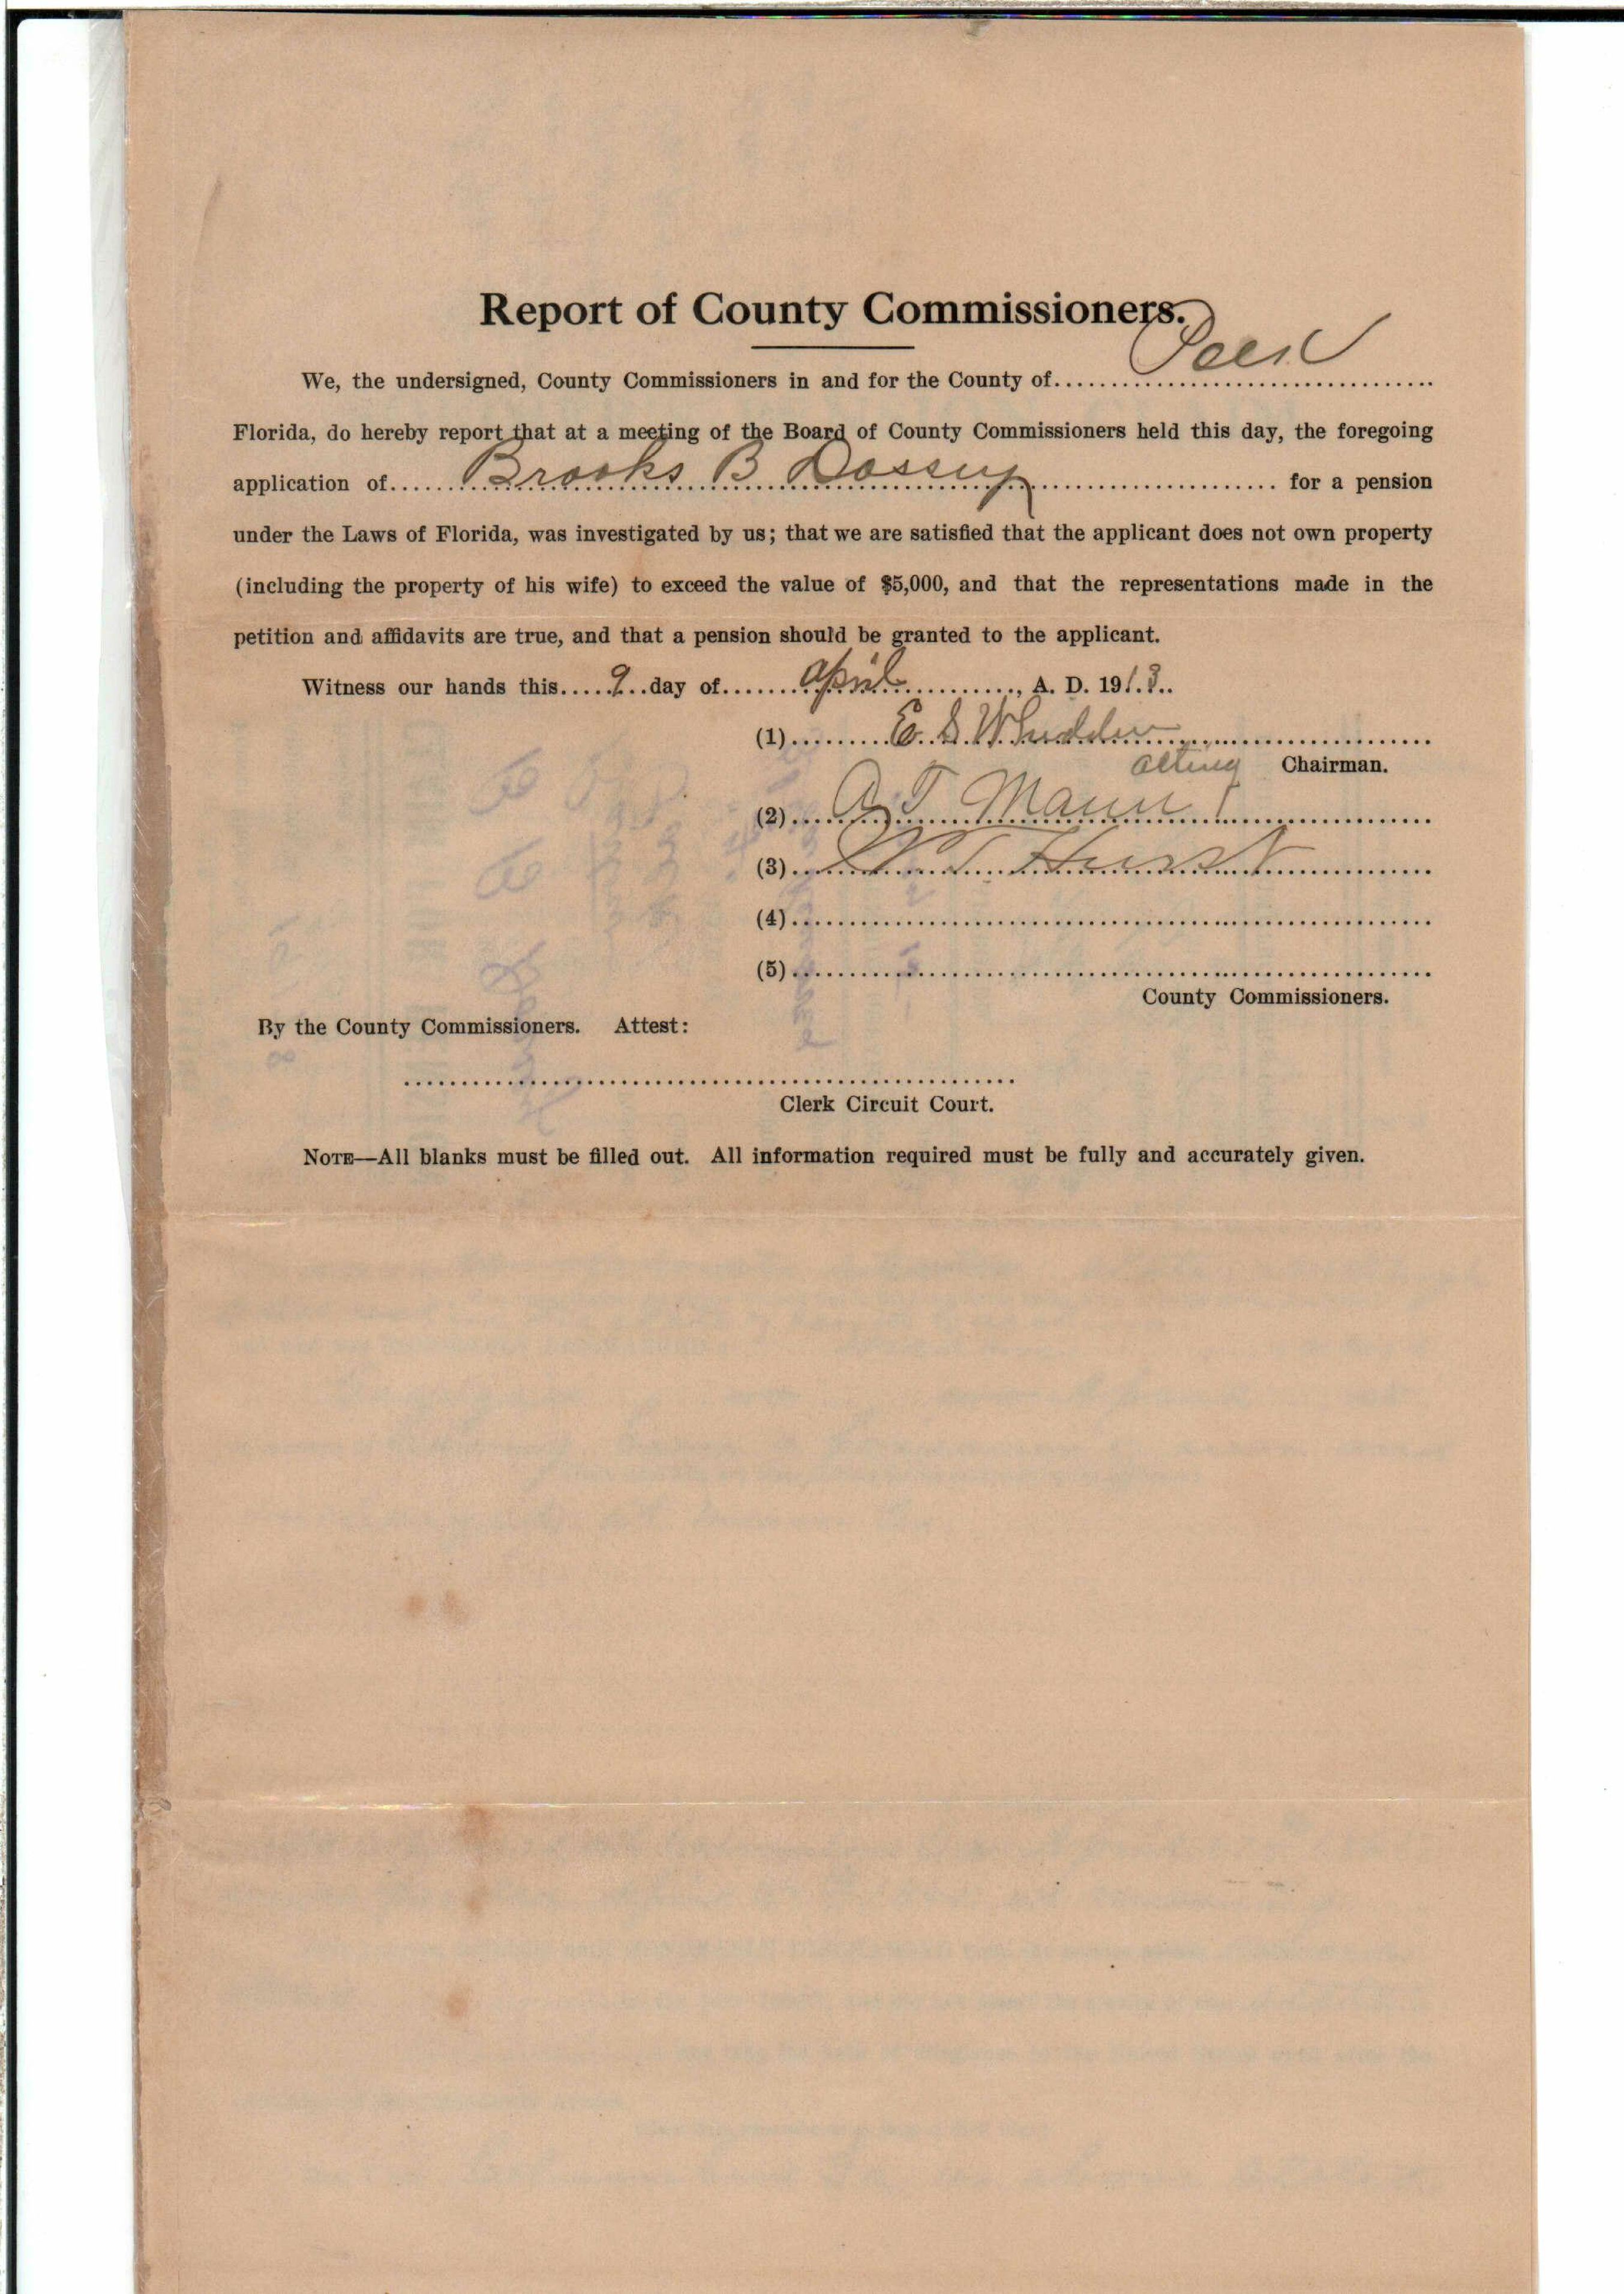 Report of County Commissioners.
We, the undersigned, County Commissioners in and for the County of
Florida, do hereby report that at a meeting of the Board of County Commissioners held this day, the foregoing
application of Brooks B Dossey for a pension
under the Laws of Florida, was investigated by us; that we are satisfied that the applicant does not own property
(including the property of his wife) to exceed the value of $5,000, and that the representations made in the
petition and affidavits are true, and that a pension should be granted to the applicant.
Witness our hands this 9 day of April, A. D. 1913
(1) E. S. Whidden
Acting Chairman.
(2) A T Mann
(3) T Hurst
(4)
(5)
County Commissioners.
By the County Commissioners. Attest:
Clerk Circuit Court.
NOTE—All blanks must be filled out. All information required must be fully and accurately given.